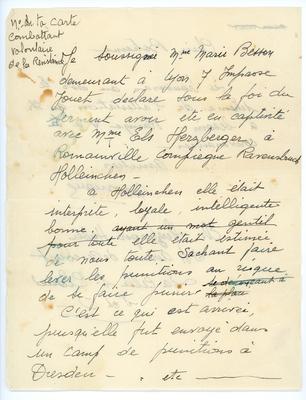 No de ta carte
combattant
volontaire
de la Résistance
Je soussigné Mme Marie Besson
demeurant à Lyon 7 Impasse
Jouet déclare sous la foi du
serment avoir été en captivité
avec Mme Els Herzberger à
Romainville Compiegne Ravensbruck
Holleinchen -
à Holleinchen elle était
interprète, loyale, intelligente
bonne. ayant un mot gentil
pour toute elle était estimée
de nous toute. Sachant faire
lever les punitions au risque
de se faire punir à la place
C'est ce qui est arrivé,
puisqu'elle fut envoyé dans
un camp de punitions à
Dresden - etc